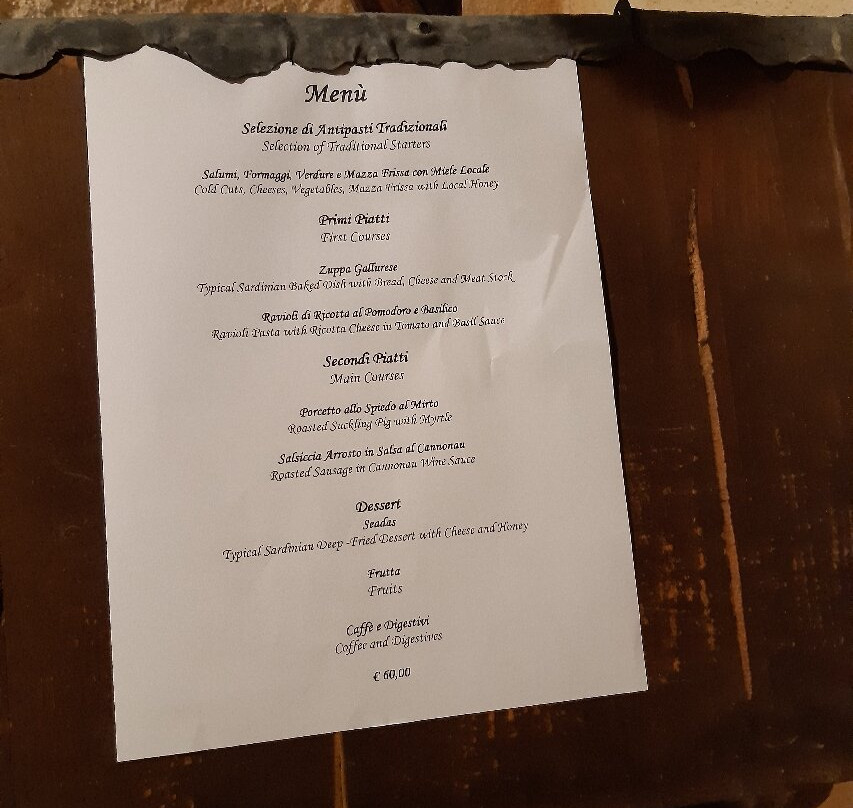 Menù
Selezione di Antipasti Tradizionali
Selection of Traditional Starters
Salumi, Formaggi, Verdure e Mazza Frissa con Miele Locale
Cold Cuts, Cheeses, Vegetables, Mazza Frissa with Local Honey
Primi Piatti
First Courses
Zuppa Gallurese
Typical Sardinian Baked Dish with Bread, Cheese and Meat Stock
Ravioli di Ricotta al Pomodoro e Basilico
Ravioli Pasta with Ricotta Cheese in Tomato and Basil Sauce
Secondi Piatti
Main Courses
Porcetto allo Spiedo al Mirto
Roasted Suckling Pig with Myrtle
Salsiccia Arrosto in Salsa al Cannonau
Roasted Sausage in Cannonau Wine Sauce
Dessert
Seadas
Typical Sardinian Deep -Fried Dessert with Cheese and Honey
Frutta
Fruits
Caffè e Digestivi
Coffee and Digestives
€ 60,00